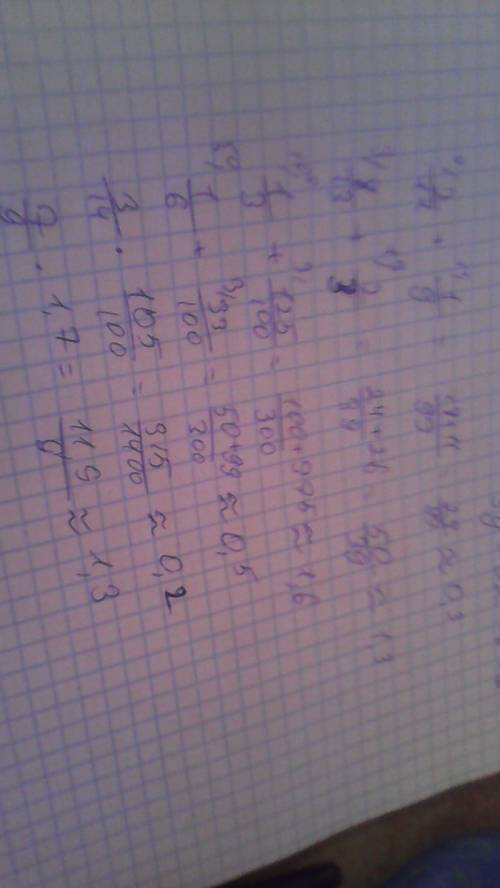 2/11 + 1/9 = 18+11/99 = 29/99 ≈ 0,3
8/13 + 2/3 = 24+26/39 = 50/39 ≈ 1,3
1/3 + 125/100 = 100+375/300 ≈ 1,6
1/6 + 33/100 = 50+99/300 ≈ 0,5
3/14 · 105/100 = 315/1400 ≈ 0,2
7/9 · 1,7 = 11,9/9 ≈ 1,3